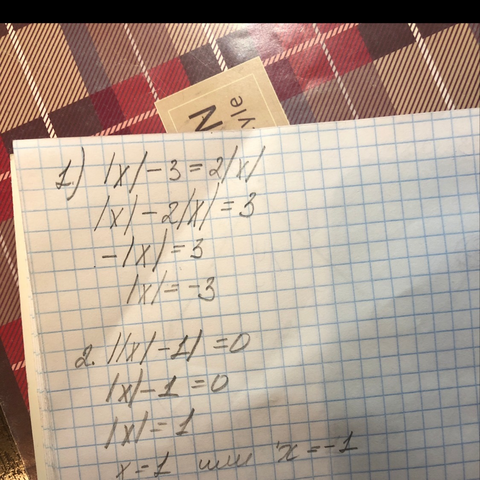 N
yle
1) |x| - 3 = 2|x|
|x| - 2|x| = 3
-|x| = 3
|x| = -3
2. ||x| - 1| = 0
|x| - 1 = 0
|x| = 1
x = 1 или x = -1